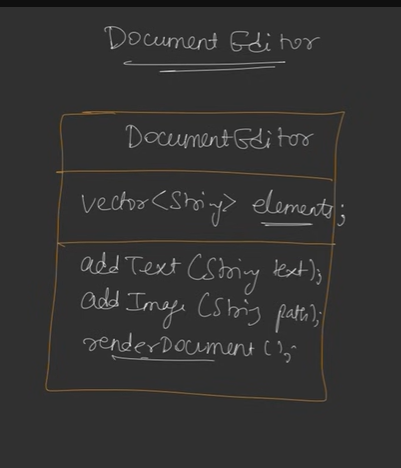 Document Editor
DocumentEditor
vector<String> elements;
addText (String text);
addImage (String path);
renderDocument ();